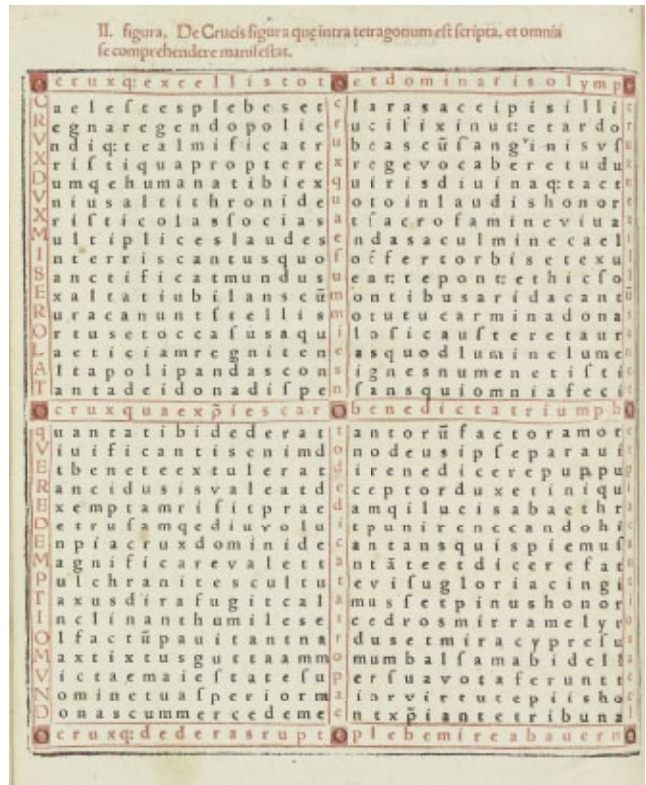 II. figura. De Crucis figura quę intra tetragonum est scripta, et omnia
se comprehendere manifestat.
Ocruxq:excelliſtotOetdominarisolympO
Caeleſteſplebeſetclaraſaccipisilli
Regnaregendopolierucifixinut:etardo
Vndiq:tealmificatrubeascūſang'inisvſ
Xriſtiquapropterexregevocaberetudu
Dumqehumanatibiexquirisdiuinaq:tact
Vniusaltithronideuotoinlaudishonor
Xriſticolasſociasatſacrofamineviua
Multipliceslaudesendasaculminecael
Interriscantusquosoffertorbisetexu
Sanctificatmundusueat:tepont:ethicſo
Exaltatiubilanscūmontibusaridacant
Ruracanuntſtellismotutucarminadona
Ortusetoccaſusaquiloſicauſteretaur
Laeticiamregniteneasquodluminelume
Altapolipandasconsignesnumenetiſti
Tantadeidonadiſpenſansquiomniafeci
OcruxquaexpiescarObenedictatriumphO
quantatibidederattantorūfactoramor
Viuificantisenimdonodeusipſeparaui
Etbeneteextuleratdirenedicerepuppu
Rancidusisvaleatdeceptorduxetiniqu
Exemptamriſitpraedamqilucisabaethr
Detruſamqediuvoluitpunirenecandohi
Enpiacruxdominidecantansquispiemuſ
Magnificarevalettantāteetdicerefat
Pulchranitescultutevifugloriacingi
Taxusdirafugitcalamusſetpinushonor
Inclinanthumilesetcedrosmirramelyr
Olfactūpauitantnardusetmiracypreſu
Maxtixtusguttaammomumbalſamabidell
Victaemaieſtateſuperſuavotaferuntt
Nominetuaſperiormaiorvirtutepiisho
Donascummercedemeentxp̄iantetribuna
Ocruxq:dederasruptOplebemireabauernO